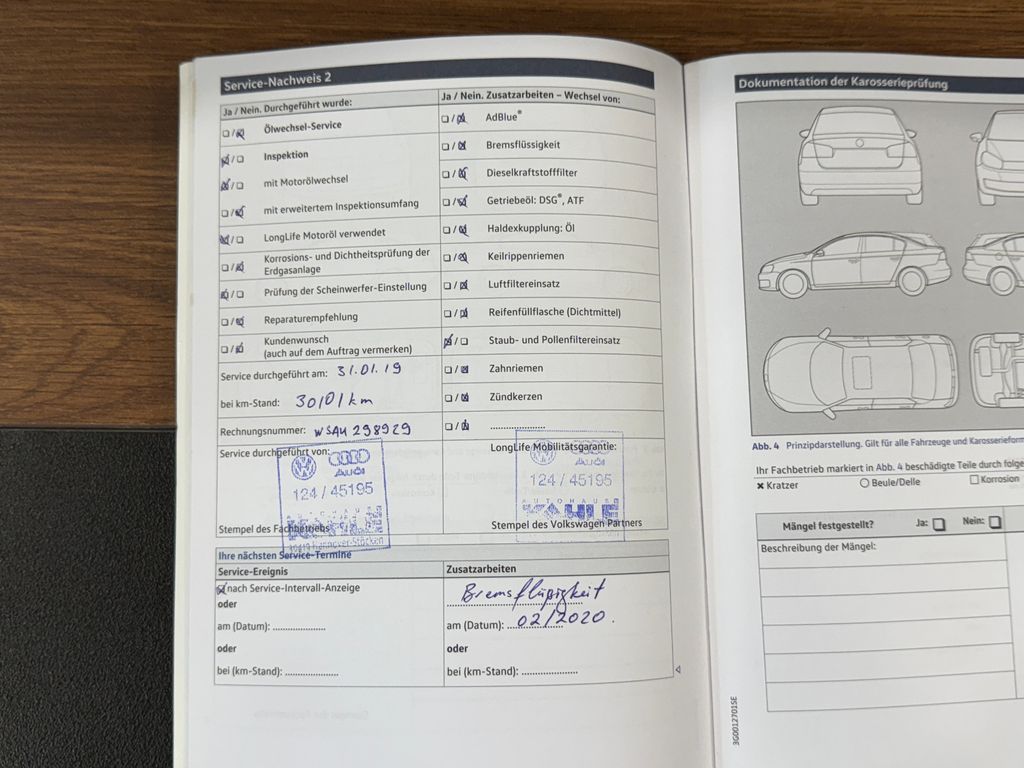 Service-Nachweis 2
Ja / Nein. Durchgeführt wurde:
Ölwechsel-Service
Inspektion
mit Motorölwechsel
mit erweitertem Inspektionsumfang
LongLife Motoröl verwendet
Korrosions- und Dichtheitsprüfung der
Erdgasanlage
Prüfung der Scheinwerfer-Einstellung
Reparaturempfehlung
Kundenwunsch
(auch auf dem Auftrag vermerken)
Service durchgeführt am: 31.01.19
bei km-Stand: 30101 km
Rechnungsnummer: WSAU 298929
Service durchgeführt von:
Audi
124 / 45195
AUTOHAUS
KAHLE
30419 Hannover-Stöcken
Stempel des Fachbetriebs
Ja / Nein. Zusatzarbeiten – Wechsel von:
AdBlue®
Bremsflüssigkeit
Dieselkraftstofffilter
Getriebeöl: DSG®, ATF
Haldexkupplung: Öl
Keilrippenriemen
Luftfiltereinsatz
Reifenfüllflasche (Dichtmittel)
Staub- und Pollenfiltereinsatz
Zahnriemen
Zündkerzen
....................
LongLife Mobilitätsgarantie:
Audi
124 / 45195
AUTOHAUS
KAHLE
Stempel des Volkswagen Partners
Ihre nächsten Service-Termine
Service-Ereignis
nach Service-Intervall-Anzeige
oder
am (Datum): ....................
oder
bei (km-Stand): ....................
Zusatzarbeiten
Bremsflüßigkeit
am (Datum): 02/2020.
oder
bei (km-Stand): ....................
Dokumentation der Karosserieprüfung
Abb. 4 Prinzipdarstellung. Gilt für alle Fahrzeuge und Karosserieform
Ihr Fachbetrieb markiert in Abb. 4 beschädigte Teile durch folge
Kratzer
Beule/Delle
Korrosion
Mängel festgestellt? Ja: Nein:
Beschreibung der Mängel:
3G0012701SE